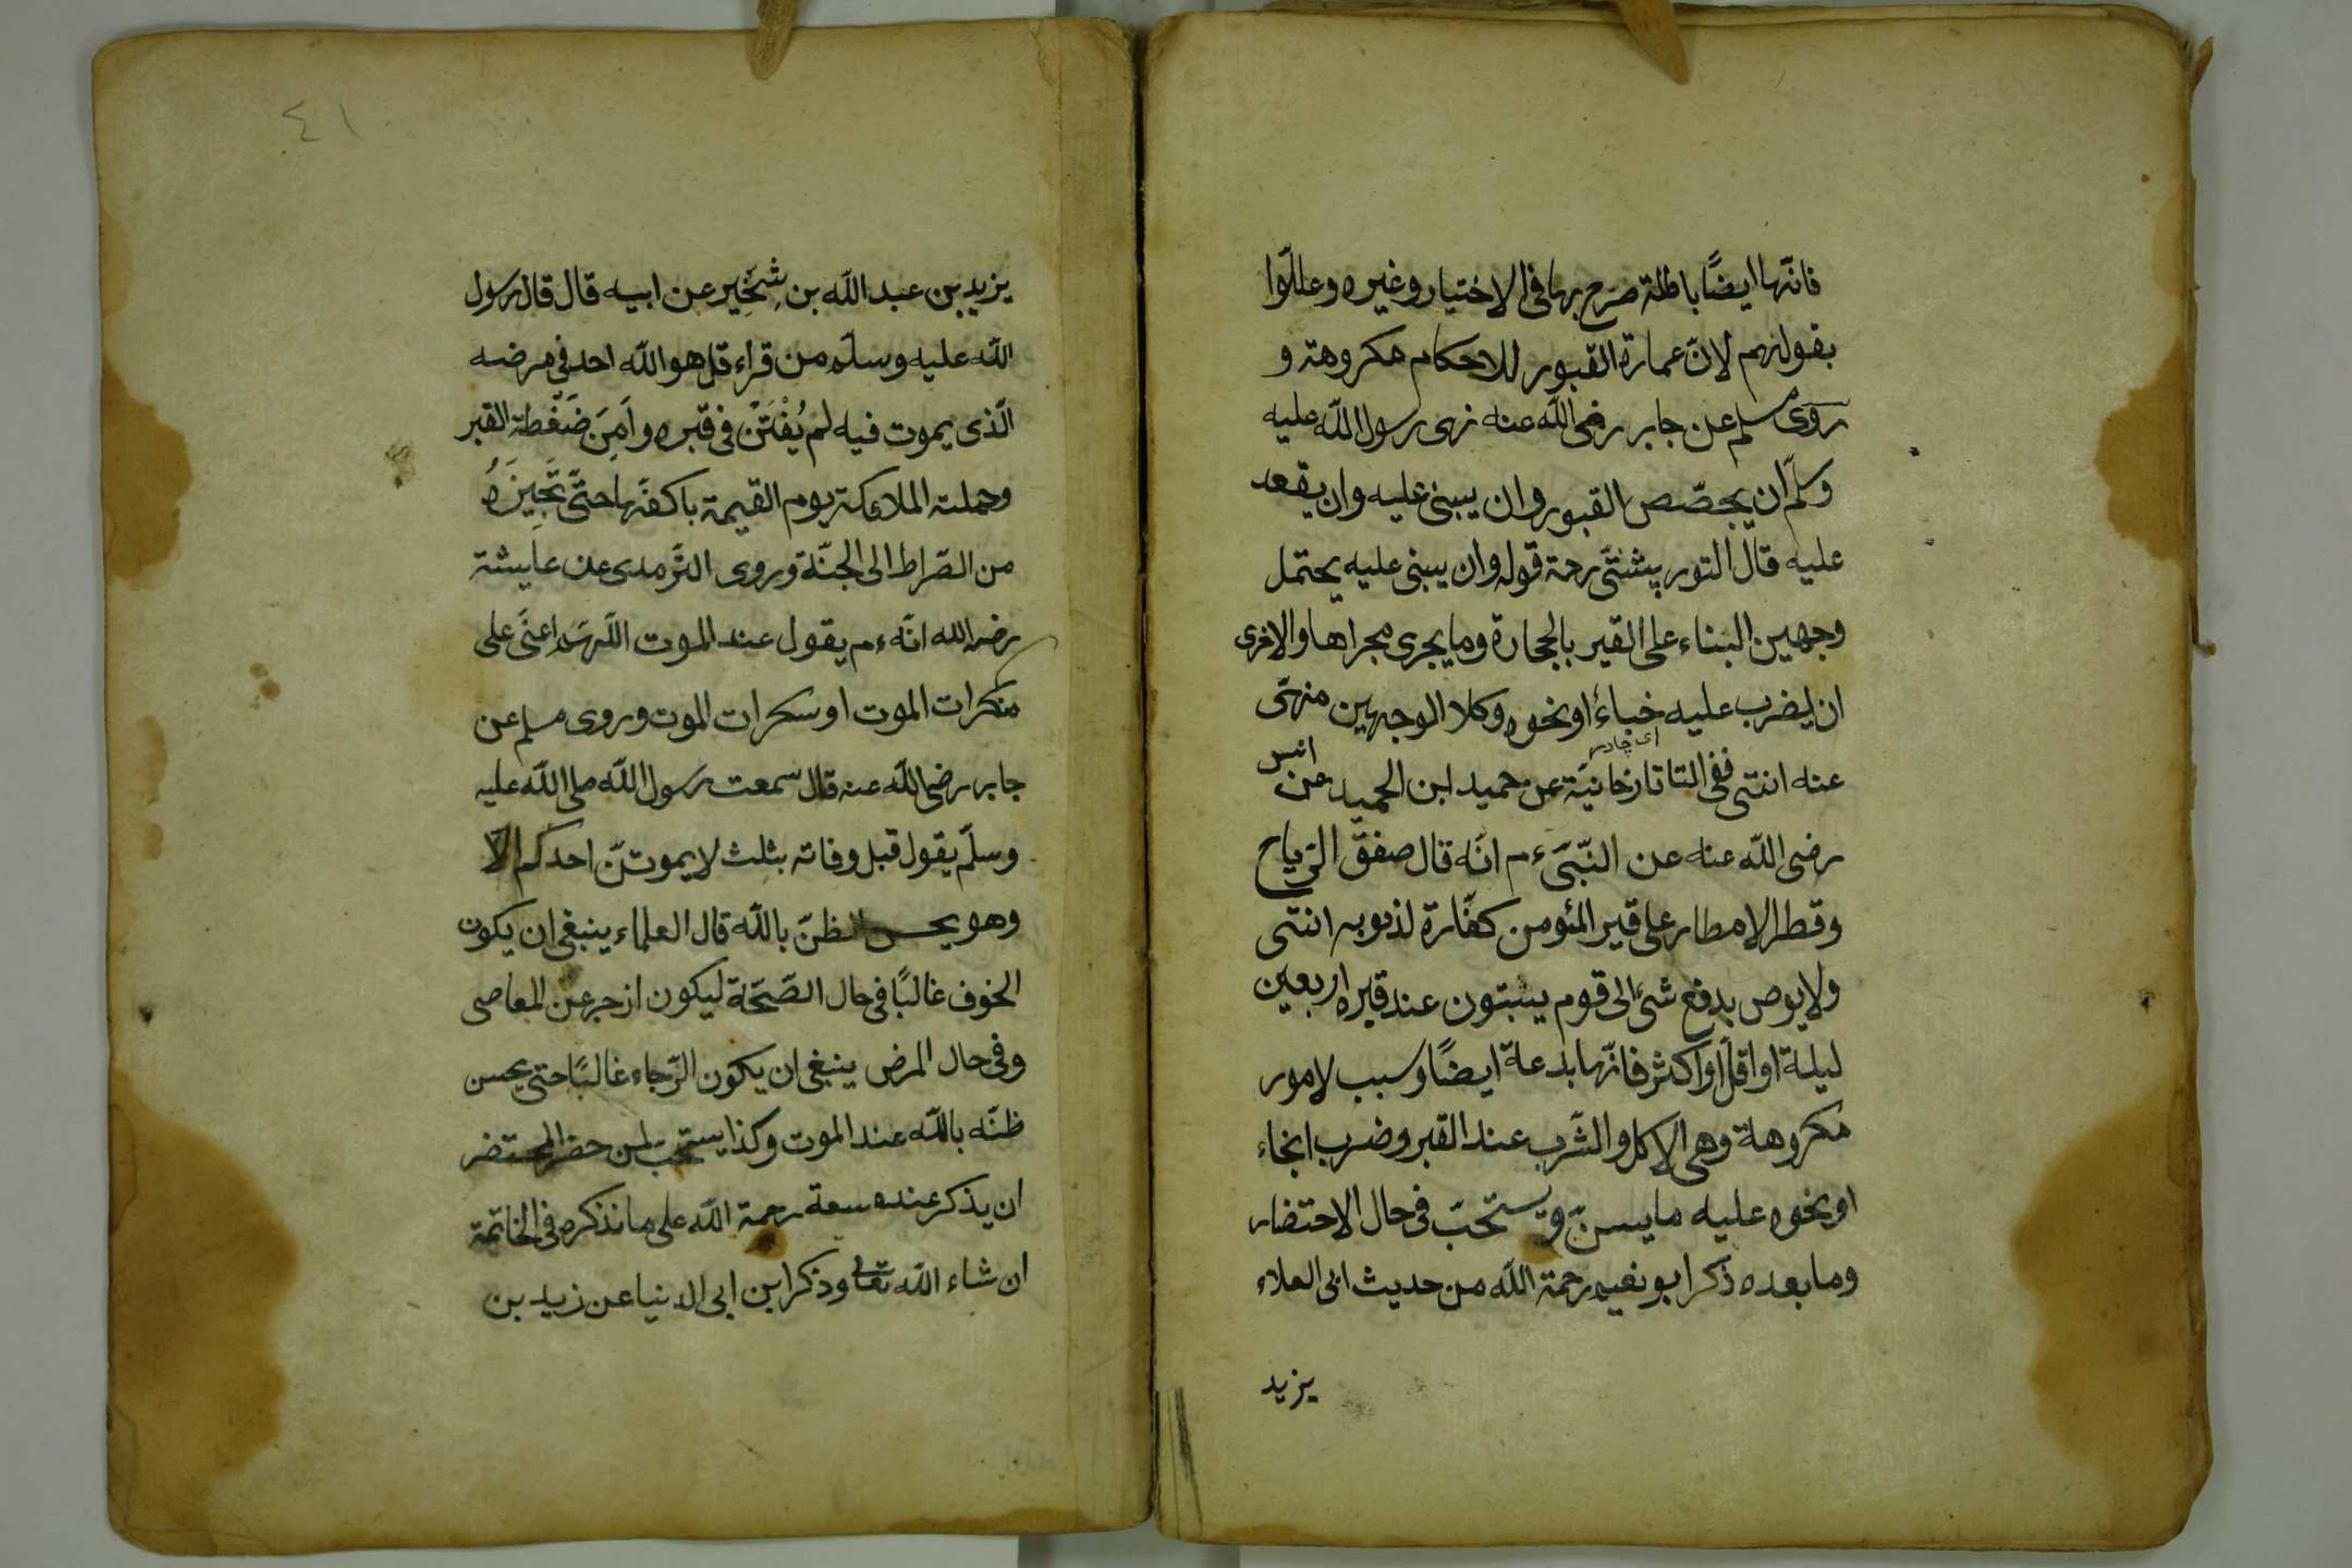 فانّها ايضًا باطلة صرح بها فى الاختيار وغيره وعللّوا
بقولهم لانّ عمارة القبور للاحكام مكروهة و
روى مسلم عن جابر رضى الله عنه نهى رسول الله عليه
وسلّم ان يجصّص القبور وان يبنى عليه وان يقعد
عليه قال التورپشتّى رحمة قوله وان يبنى عليه يحتمل
وجهين البناء على القبر بالحجارة وما يجرى مجراها والاخرى
ان يضرب عليه خباءً او نحوه وكلا الوجهين منهىّ
اى چادر
عنه انتهى ففى التاتارخانيّة عن حميد ابن الحميد عن انس
رضى الله عنه عن النّبىّ ءم انّه قال صفق الرّياح
وقطر الامطار على قبر المؤمن كفّارة لذنوبه انتهى
ولا يوص بدفع شىء الى قوم يبيتون عند قبره اربعين
ليلة او اقلّ او اكثر فانّها بدعة ايضًا وسبب لامور
مكروهة وهى الاكل والشّرب عند القبر وضرب الخاء
او نحوه عليه ما يسنّ ويستحبّ فى حال الاحتضار
وما بعده ذكر ابو نعيم رحمة الله من حديث ابى العلاء
يزيد
٤١
يزيد بن عبد الله بن شخّير عن ابيه قال قال رسول
الله عليه وسلّم من قراء قل هو الله احد فى مرضه
الّذى يموت فيه لم يُفْتَنْ فى قبره واَمِنَ ضَغْطة القبر
وحملته الملائكة يوم القيمة باكفّها حتّى تُجِيزَهُ
من الصّراط الى الجنّة وروى التّرمدى عن عايشة
رضى الله انّه ءم يقول عند الموت اللّهمّ اعنّى على
منكرات الموت او سكرات الموت وروى مسلم عن
جابر رضى الله عنه قال سمعت رسول الله صلى الله عليه
وسلّم يقول قبل وفاته بثلث لا يموتنّ احدكم الّا
وهو يحسن الظنّ بالله قال العلماء ينبغى ان يكون
الخوف غالبًا فى حال الصّحّة ليكون ازجر عن المعاصى
وفى حال المرض ينبغى ان يكون الرّجاء غالبًا حتى يحسن
ظنّه بالله عند الموت وكذا يستحبّ لمن حضر المحتضر
ان يذكر عنده سعة رحمة الله على ما نذكره فى الخاتمة
ان شاء الله تعالى وذكر ابن ابى الدنيا عن زيد بن